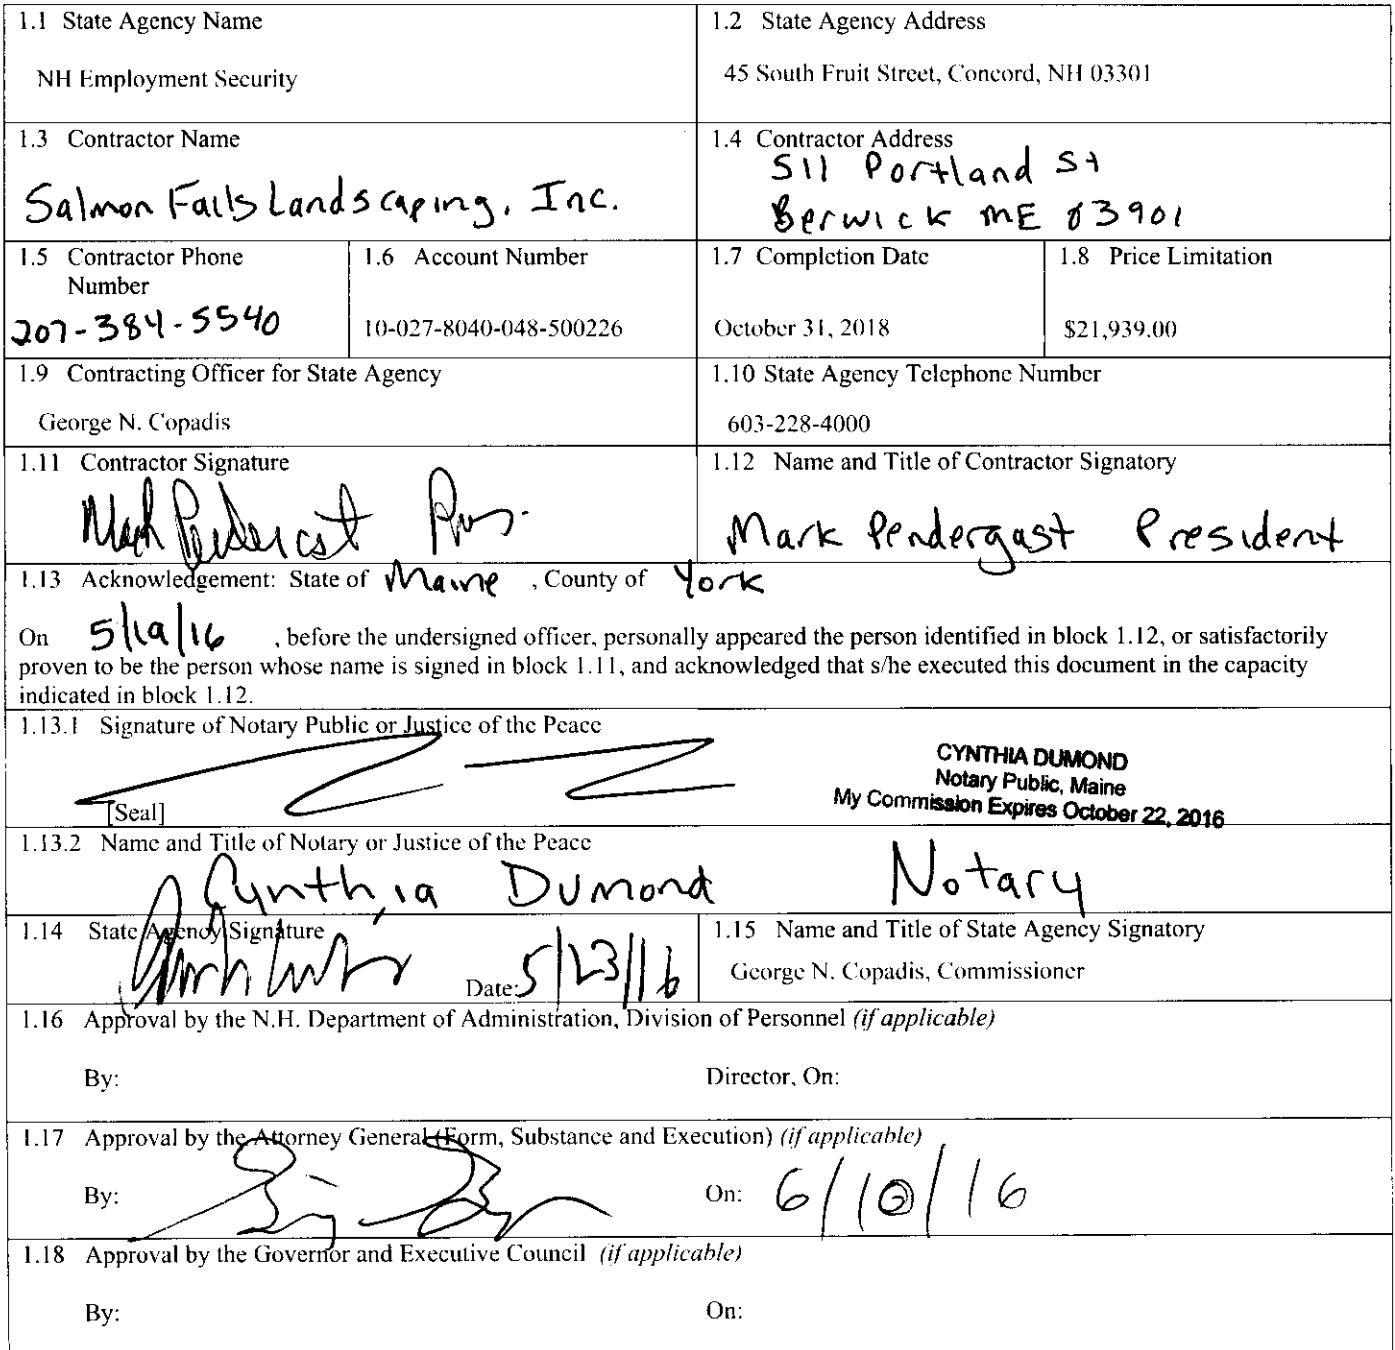 1.1 State Agency Name
NH Employment Security
1.2 State Agency Address
45 South Fruit Street, Concord, NH 03301
1.3 Contractor Name
Salmon Falls Landscaping, Inc.
1.4 Contractor Address
511 Portland St
Berwick ME 03901
1.5 Contractor Phone
Number
207-384-5540
1.6 Account Number
10-027-8040-048-500226
1.7 Completion Date
October 31, 2018
1.8 Price Limitation
$21,939.00
1.9 Contracting Officer for State Agency
George N. Copadis
1.10 State Agency Telephone Number
603-228-4000
1.11 Contractor Signature
Mark Pendergast Pres.
1.12 Name and Title of Contractor Signatory
Mark Pendergast President
1.13 Acknowledgement: State of Maine , County of York
On 5/19/16 , before the undersigned officer, personally appeared the person identified in block 1.12, or satisfactorily
proven to be the person whose name is signed in block 1.11, and acknowledged that s/he executed this document in the capacity
indicated in block 1.12.
1.13.1 Signature of Notary Public or Justice of the Peace
[Seal]
CYNTHIA DUMOND
Notary Public, Maine
My Commission Expires October 22, 2016
1.13.2 Name and Title of Notary or Justice of the Peace
Cynthia Dumond Notary
1.14 State Agency Signature
Date: 5/23/16
1.15 Name and Title of State Agency Signatory
George N. Copadis, Commissioner
1.16 Approval by the N.H. Department of Administration, Division of Personnel (if applicable)
By: Director, On:
1.17 Approval by the Attorney General (Form, Substance and Execution) (if applicable)
By: On: 6/10/16
1.18 Approval by the Governor and Executive Council (if applicable)
By: On: